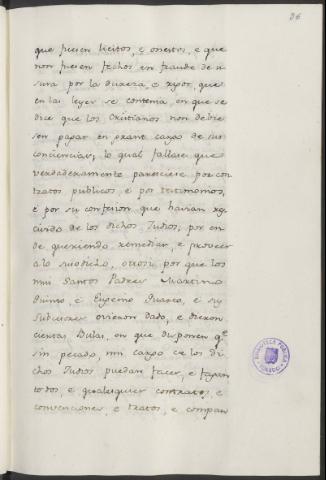 26
que fuesen licitos, e onestos, e que
non fuesen fechos en fraude de u
sura por la manera, e
en las leyes se contenia, en que se
dice que los Cristianos non debie
sen pagar en grant cargo de sus
conciencias; lo qual fallare que
verdaderamente paresciere por con
tratos publicos e por testimonios,
e por su confesion que havian re
civido de los dichos Judios; por en
de queriendo remediar, e proveer
a lo susodicho, otrosi, por que los
mui Santos Padres Martino
Quinto, e Eugenio Quarto, e su
subcesores ovieron dado, e dieron
ciertas Bulas, en que disponen q.e
sin pecado, nin cargo ca los di
chos Judios puedan facer, e fagan
todos, e qualesquier contratos, e
convenciones, e tratos, e compras
BIBLIOTECA PUBLICA
TOLEDO